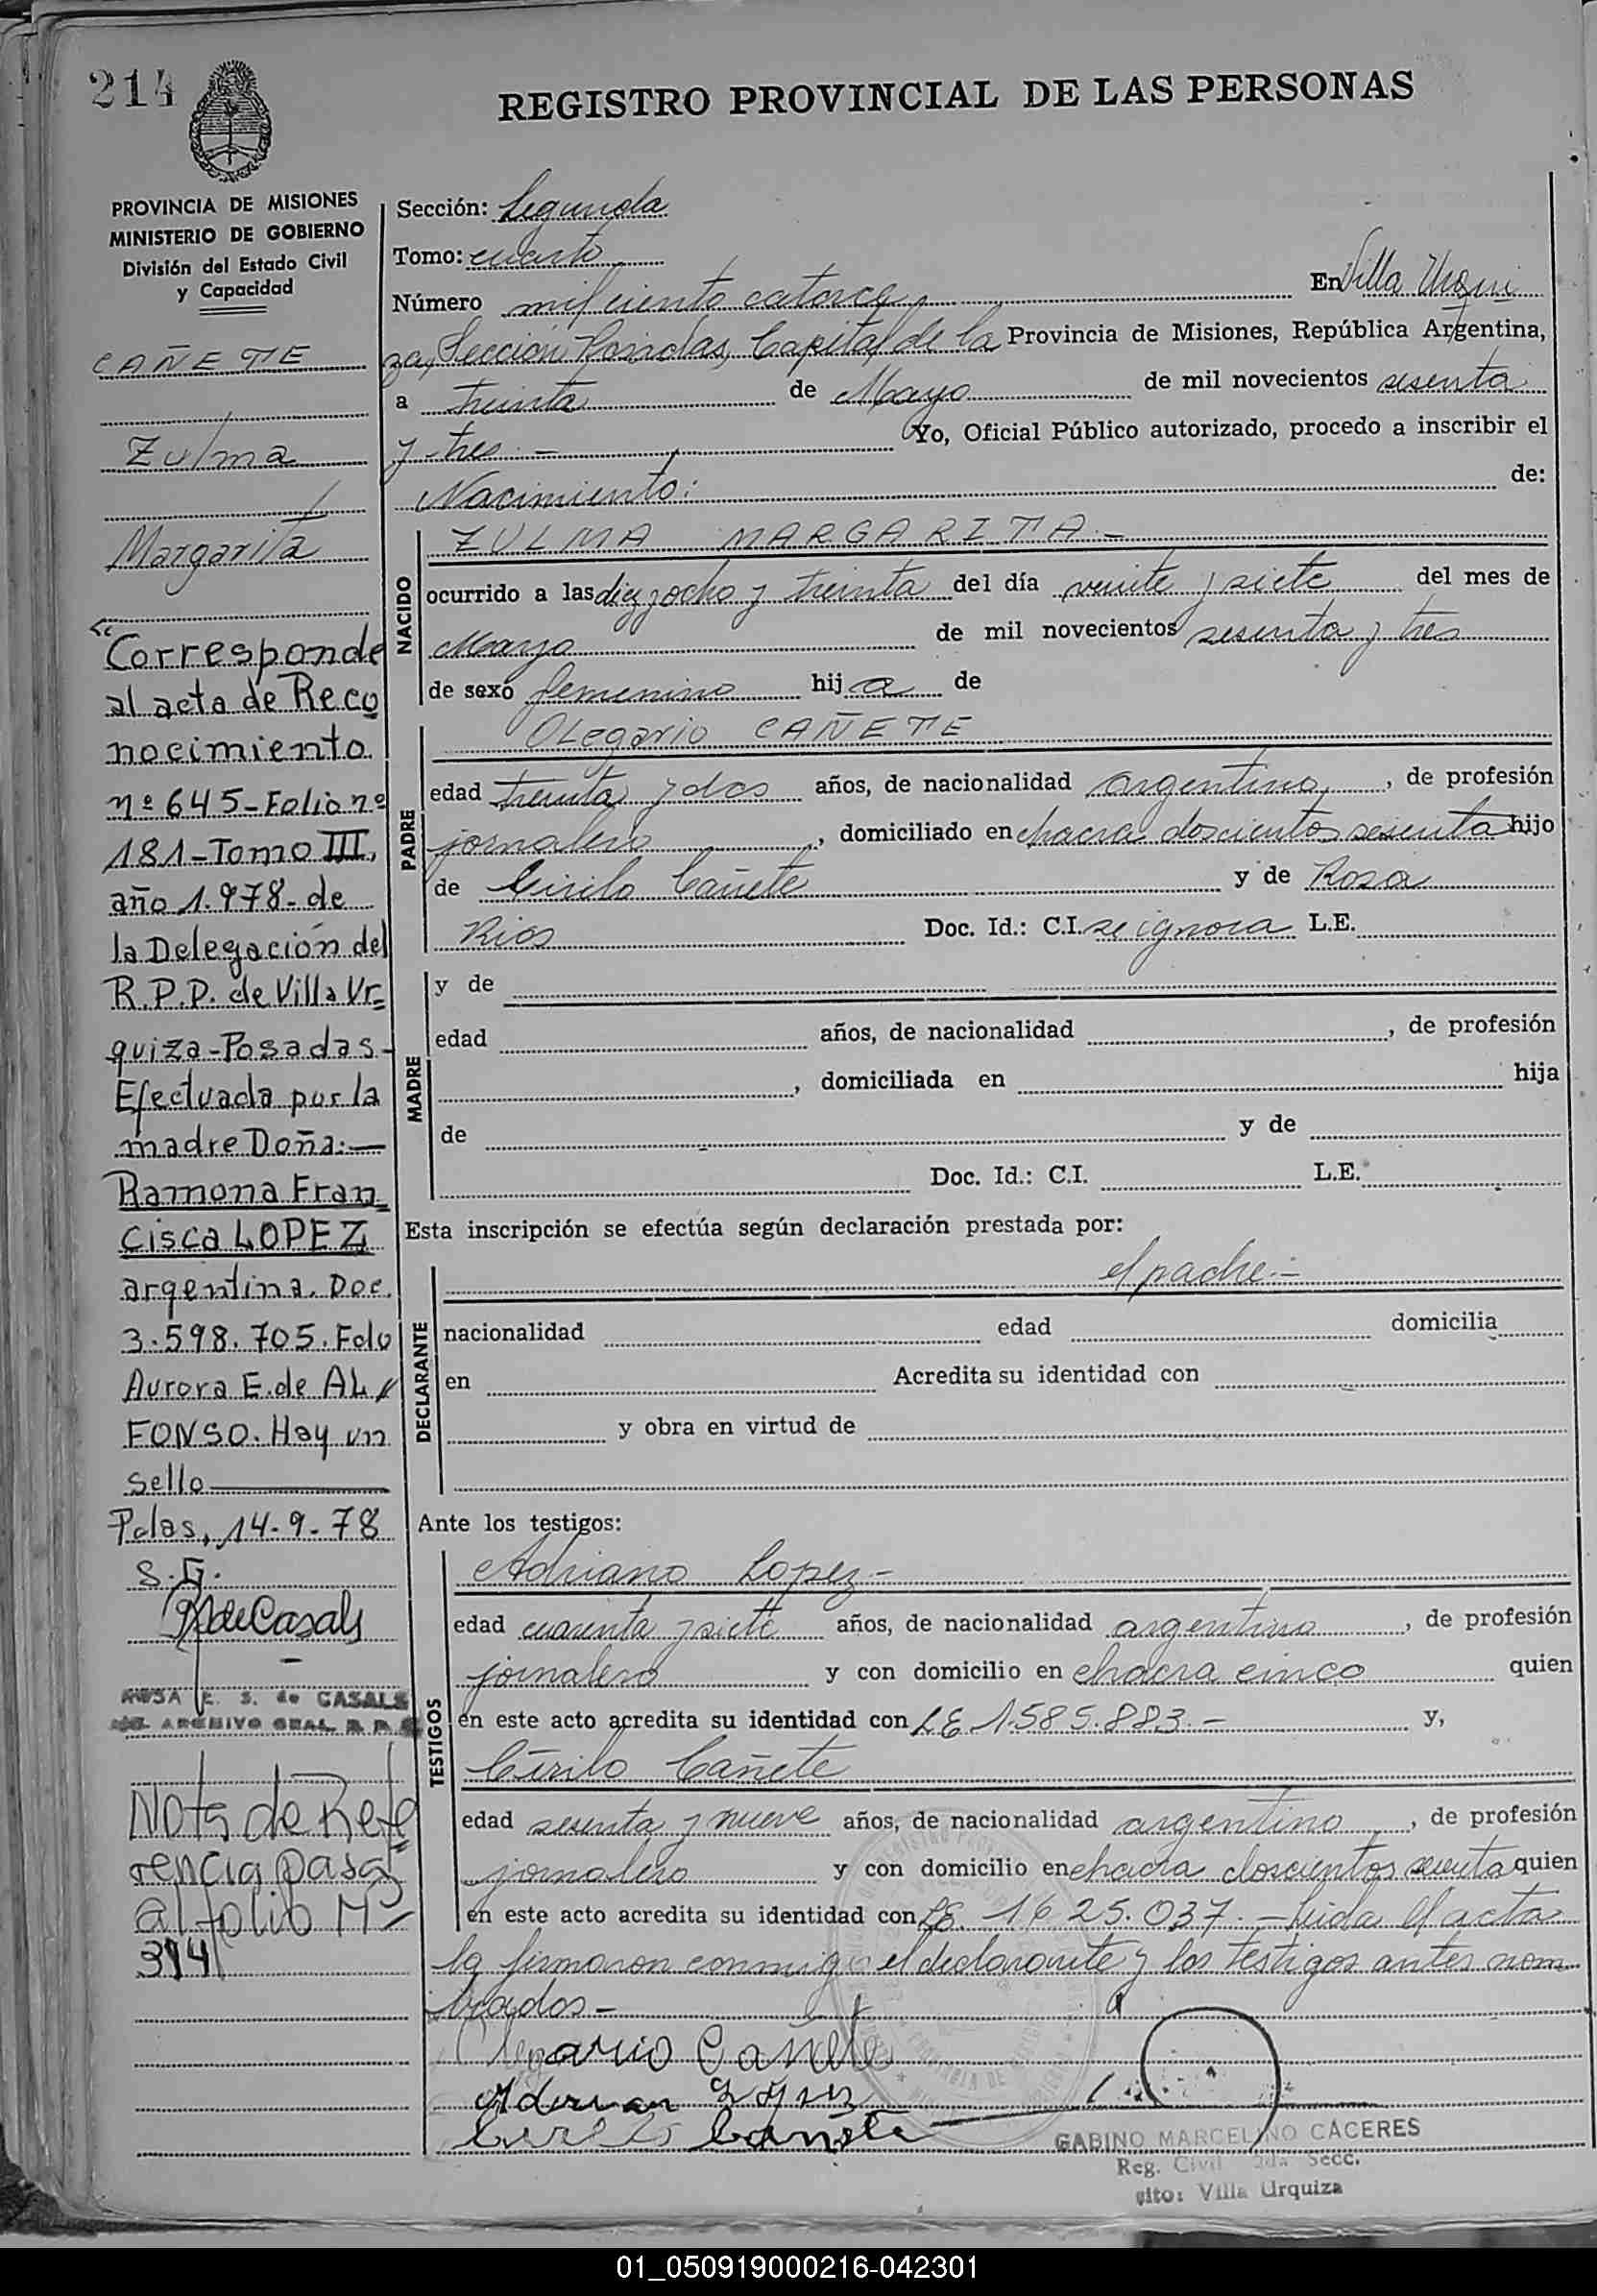 214
REGISTRO PROVINCIAL DE LAS PERSONAS
PROVINCIA DE MISIONES
MINISTERIO DE GOBIERNO
División del Estado Civil
y Capacidad
CAÑETE
Zulma
Margarita
"Corresponde
al acta de Reco
nocimiento
nº 645-Folio nº
181-Tomo III,
año 1.978- de
la Delegación del
R.P.P. de Villa Ur=
quiza-Posadas-
Efectuada por la
madre Doña:—
Ramona Fran=
cisca LOPEZ
argentina. Doc.
3.598.705. Fdo
Aurora E. de AL
FONSO. Hay un
sello
Pdas, 14-9-78
S.G.
RdeCasals
ROSA E. S. de CASALS
ARCHIVO GRAL. R. P.
Nota de Refe
rencia pasa
al folio Nº
314
Sección: Segunda
Tomo: cuarto
Número mil ciento catorce, En Villa Urqui
za, Sección Posadas, Capital de la Provincia de Misiones, República Argentina,
a treinta de Mayo de mil novecientos sesenta
y tres - Yo, Oficial Público autorizado, procedo a inscribir el
Nacimiento: de:
NACIDO
ZULMA MARGARITA -
ocurrido a las diez y ocho y treinta del día veinte y siete del mes de
Marzo de mil novecientos sesenta y tres
de sexo femenino hij a de
PADRE
Olegario CAÑETE
edad treinta y dos años, de nacionalidad argentino, de profesión
jornalero, domiciliado en chacra doscientos sesenta hijo
de Cirilo Cañete y de Rosa
Rios Doc. Id.: C.I. se ignora L.E.
MADRE
y de
edad años, de nacionalidad , de profesión
, domiciliada en hija
de y de
Doc. Id.: C.I. L.E.
Esta inscripción se efectúa según declaración prestada por:
DECLARANTE
el padre.-
nacionalidad edad domicilia
en Acredita su identidad con
y obra en virtud de
Ante los testigos:
TESTIGOS
Adriano Lopez -
edad cuarenta y siete años, de nacionalidad argentino, de profesión
jornalero y con domicilio en chacra cinco quien
en este acto acredita su identidad con LE 1.585.883.- y,
Cirilo Cañete
edad sesenta y nueve años, de nacionalidad argentino, de profesión
jornalero y con domicilio en chacra doscientos quien
en este acto acredita su identidad con LE. 1625.037.- Leida el acta
la firmaron conmigo el declarante y los testigos antes nom
brados -
Olegario Cañete
Cirilo Cañete
GABINO MARCELINO CACERES
Reg. Civil 2da Secc.
sito: Villa Urquiza
01_050919000216-042301